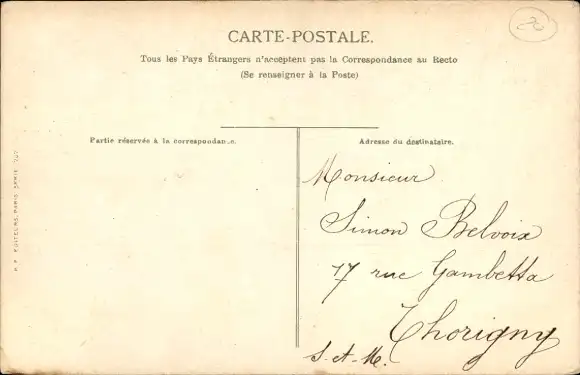 CARTE-POSTALE.
Tous les Pays Étrangers n'acceptent pas la Correspondance au Recto
(Se renseigner à la Poste)
Partie réservée à la correspondance.
Adresse du destinataire.
Monsieur
Simon Belvoix
17 rue Gambetta
Thorigny
S.-et-M.
ÉDITEURS, PARIS, SÉRIE